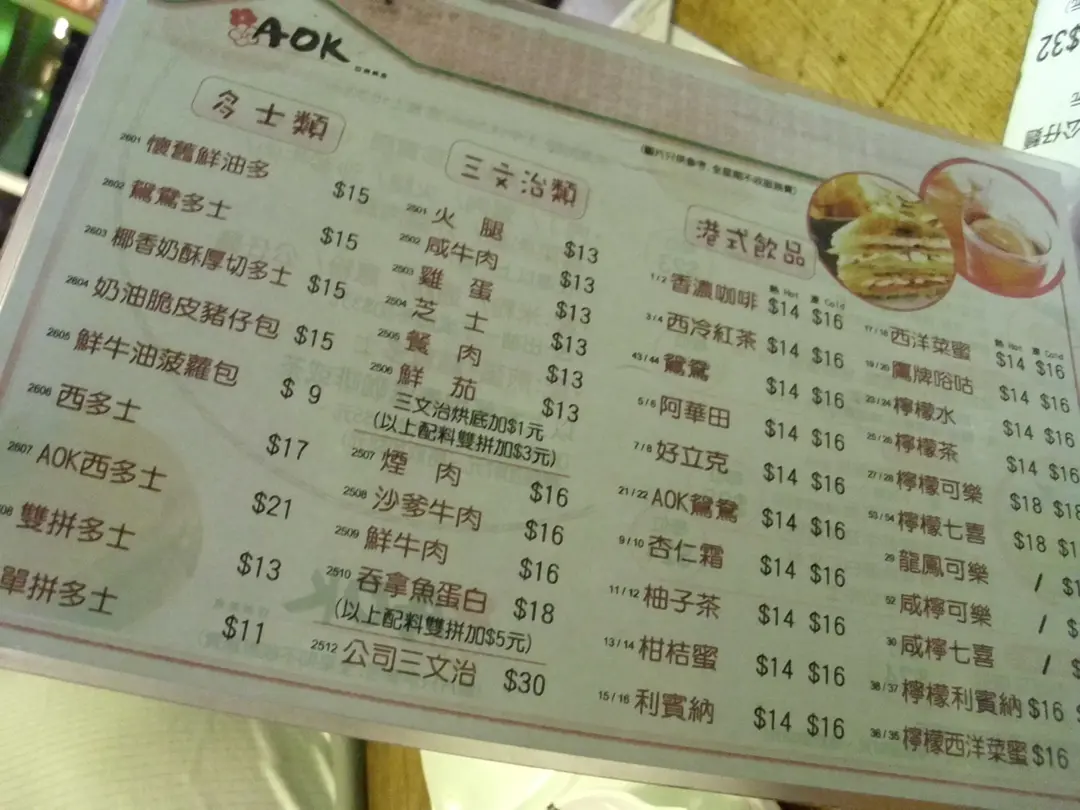 AOK
多士類
2601 懷舊鮮油多 $15
2602 鴛鴦多士 $15
2603 椰香奶酥厚切多士 $15
2604 奶油脆皮豬仔包 $15
2605 鮮牛油菠蘿包 $ 9
2606 西多士 $17
2607 AOK西多士 $21
08 雙拼多士 $13
單拼多士 $11
三文治類
2501 火腿 $13
2502 咸牛肉 $13
2503 雞蛋 $13
2504 芝士 $13
2505 餐肉 $13
2506 鮮茄 $13
三文治烘底加$1元
(以上配料雙拼加$3元)
2507 煙肉 $16
2508 沙爹牛肉 $16
2509 鮮牛肉 $16
2510 吞拿魚蛋白 $18
(以上配料雙拼加$5元)
2512 公司三文治 $30
(圖片只供參考, 全星期不收服務費)
港式飲品
熱 Hot 凍 Cold
1/2 香濃咖啡 $14 $16
3/4 西冷紅茶 $14 $16
43/44 鴛鴦 $14 $16
5/6 阿華田 $14 $16
7/8 好立克 $14 $16
21/22 AOK鴛鴦 $14 $16
9/10 杏仁霜 $14 $16
11/12 柚子茶 $14 $16
13/14 柑桔蜜 $14 $16
15/16 利賓納 $14 $16
熱 Hot 凍 Cold
17/18 西洋菜蜜 $14 $16
19/20 鷹牌唂咕 $14 $16
23/24 檸檬水 $14 $16
25/26 檸檬茶 $14 $16
27/28 檸檬可樂 $18 $18
53/54 檸檬七喜 $18 $1
29 龍鳳可樂 / $1
52 咸檸可樂 / $
30 咸檸七喜 / $
38/37 檸檬利賓納 $16 $
36/35 檸檬西洋菜蜜 $16
$32
公仔麵